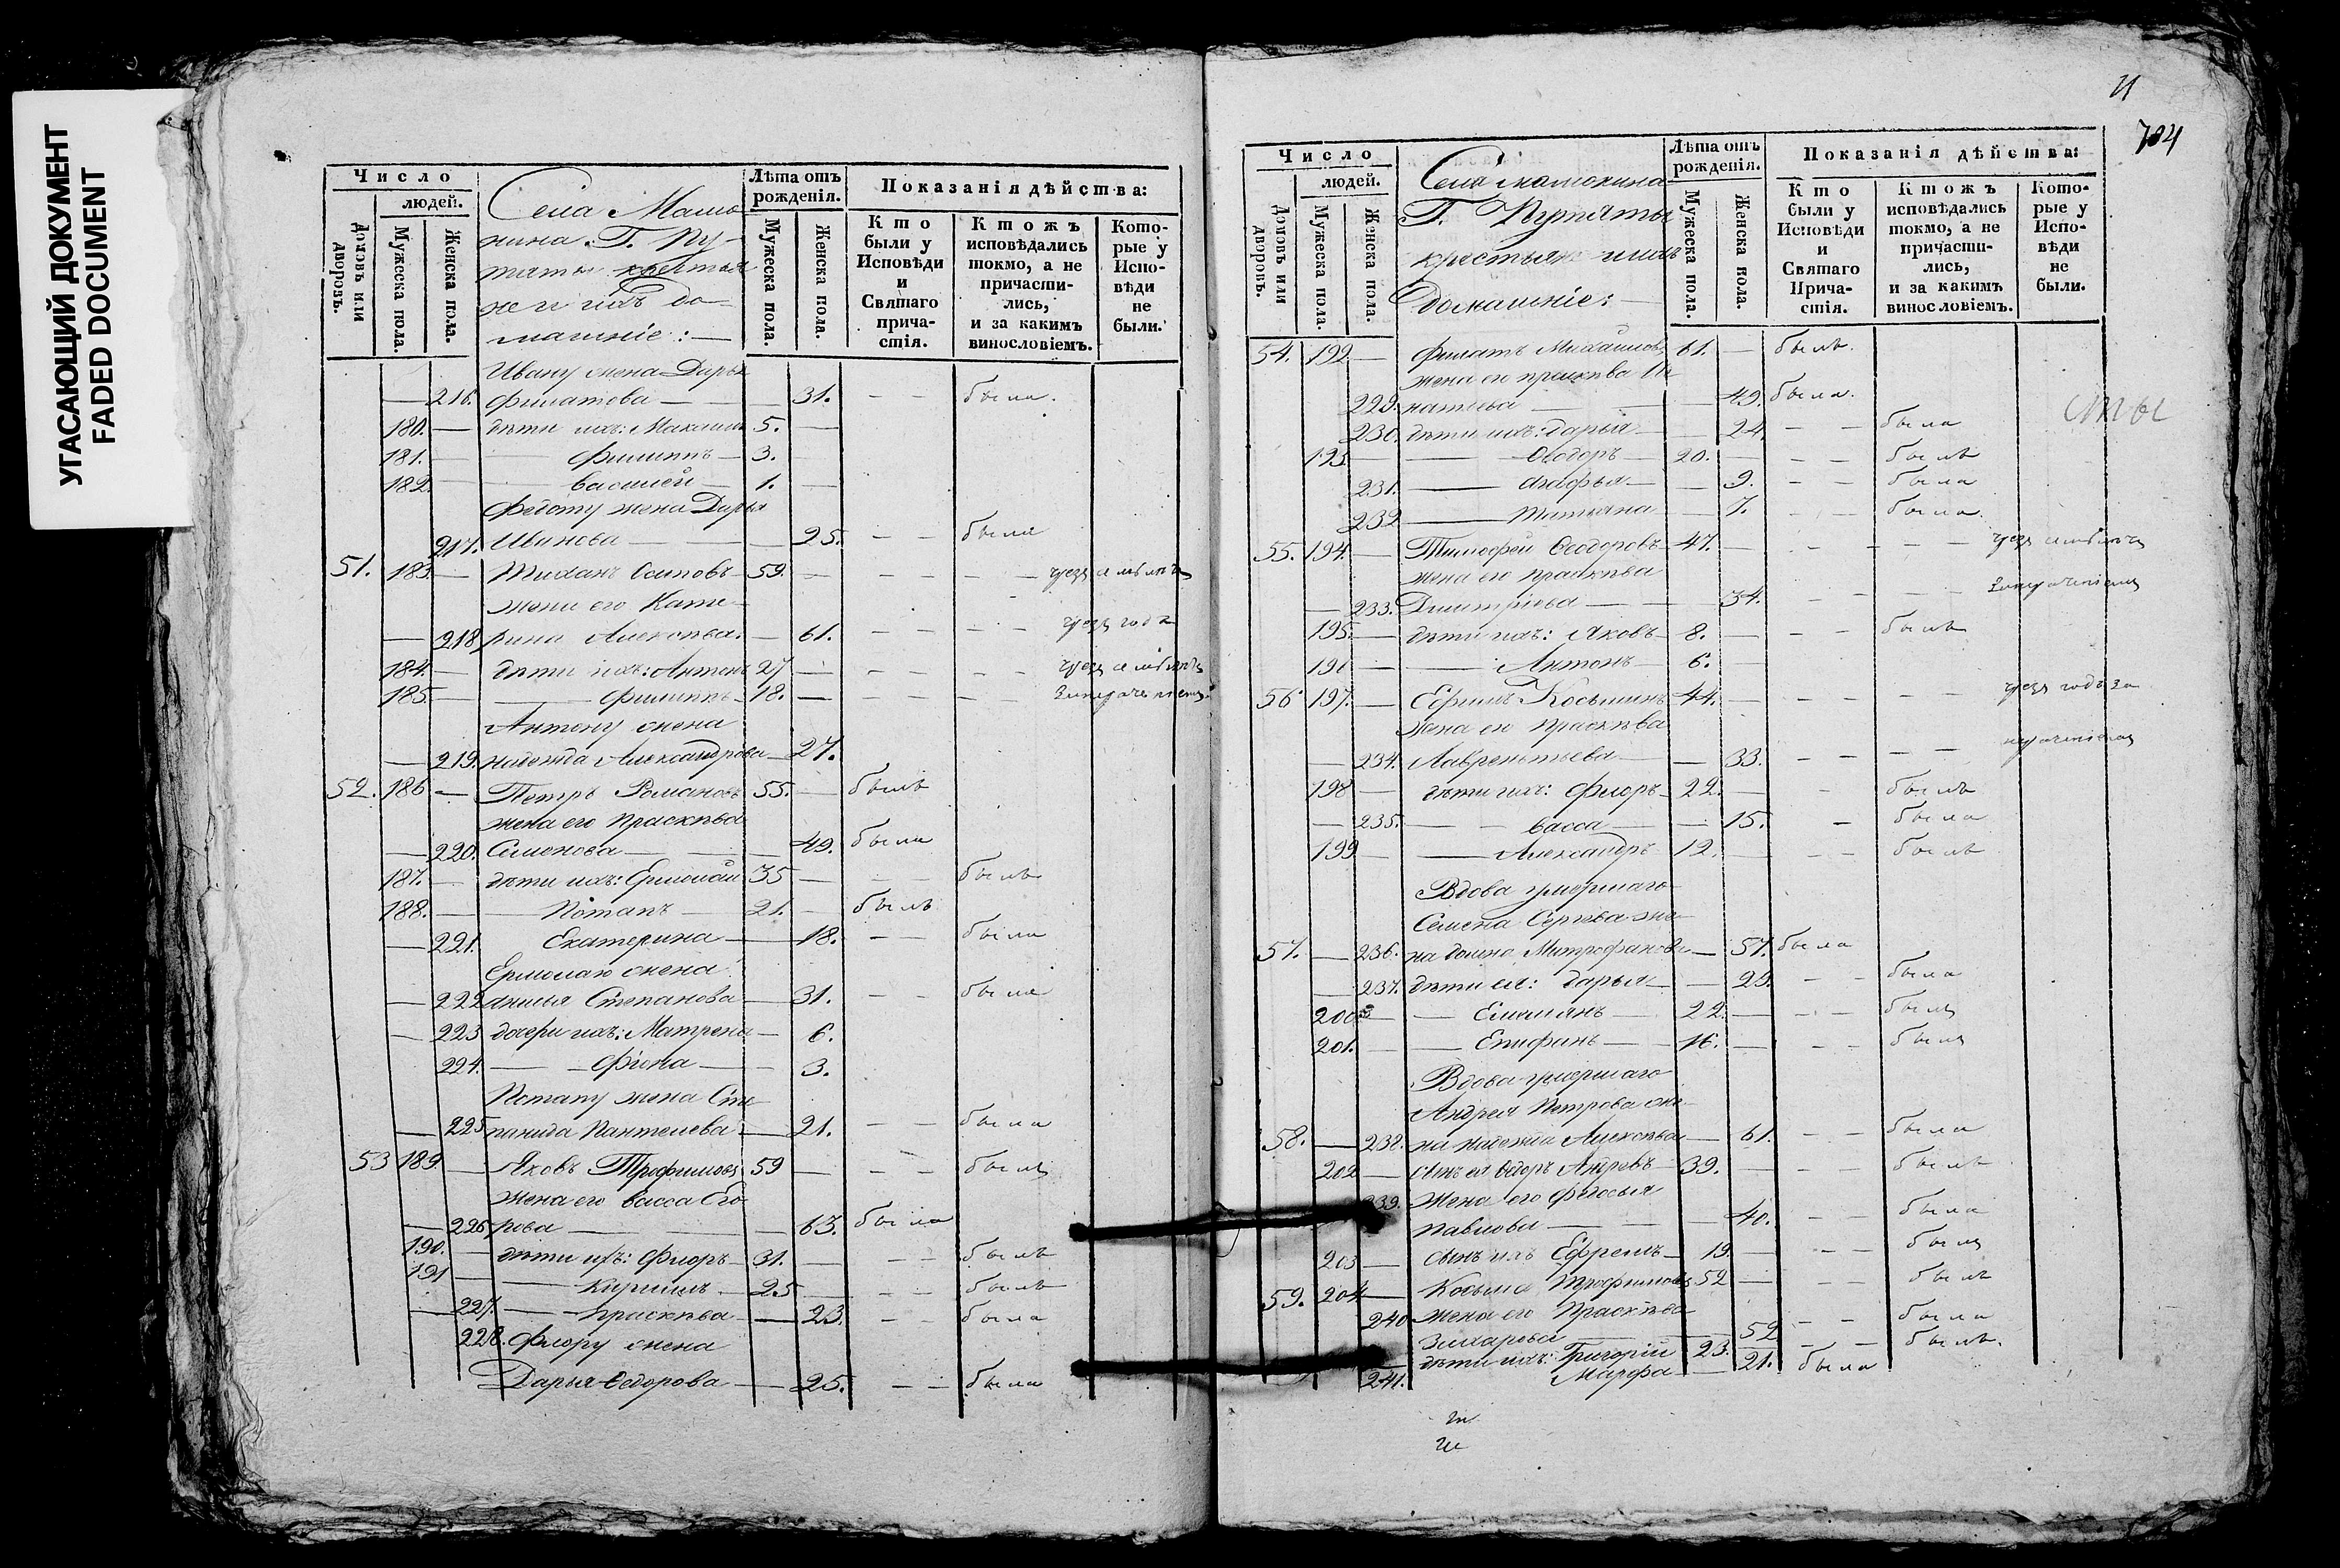 УГАСАЮЩИЙ ДОКУМЕНТ
FADED DOCUMENT
Число
людей.
Домовъ или дворовъ.
Мужеска пола.
Женска пола.
Села Малю-
кина Г. Пу-
тяты крестья-
не и ихъ до-
машніе: —
Лѣта отъ рожденія.
Мужеска пола.
Женска пола.
Показанія дѣйства:
Кто были у Исповѣди и Святаго причастія.
Ктожъ исповѣдались токмо, а не причастились, и за какимъ винословіемъ.
Которые у Исповѣди не были.
Ивану жена Дарья
— 216. Филатова — — 31. — — была.
180. — дѣти ихъ: Максимъ 5. —
181. — — Филиппъ — 3. —
182. — — Василей — 1. —
Федоту жена Дарья
217. Иванова — — 25. — — была
51. 183. — Осиповъ — 59. — — — — —
жена его Кате-
— 218 рина Алексѣева. — 61. — — — — чрезъ года
184. — дѣти ихъ: Антонъ 27 — — — — —
185. — — Филиппъ — 18. — — — — —
Антону жена
— 219. Надежда Александрова — 27.
52. 186 — Петръ Романовъ 55. — былъ
жена его Прасковья
— 220. Семенова — — 49. была
187. — дѣти ихъ: Ермолай 35 — — — былъ
188. — — Потапъ — 21. — былъ
— 221. Екатерина — — 18. — — была
Ермолаю жена
— 222 Анисья Степанова — 31. — — была
— 223 дочери ихъ: Матрена — 6.
224. — — Фіона — — 3.
Потапу жена Сте-
— 225 панида Пантелеева — 21. — — была
53 189. — Яковъ Трофимовъ 59 — — — былъ
жена его Васса Его-
— 226. рова — — 63. была
190. — дѣти ихъ: Флоръ — 31. — — — былъ
191 — — Кирилъ — 25 — — — былъ
— 227. — Прасковья — — 23. — — была
228. Флору жена
Дарья Ѳедорова — — 25. — — была
704
Число
людей.
Домовъ или дворовъ.
Мужеска пола.
Женска пола.
Села Малюкина
Г. Путяты
крестьяне и ихъ
домашніе: —
Лѣта отъ рожденія.
Мужеска пола.
Женска пола.
Показанія дѣйства:
Кто были у Исповѣди и Святаго Причастія.
Ктожъ исповѣдались токмо, а не причастились, и за какимъ винословіемъ.
Которые у Исповѣди не были.
54. 192 — Филатъ Михайловъ 61. — былъ.
жена его Прасковья Иг-
229. натьева — — 49. была.
230. дѣти ихъ: Дарья — — 24. — — была
193 — Ѳеодоръ — 20. — — — былъ
231. — Агафья — — 9. — — была
232 — Татьяна — 7. — — была
55. 194. — Тимофей Ѳеодоровъ 47. — — — — —
жена его Прасковья
— 233. Дмитріева — — 34. — — — —
195. — дѣти ихъ: Яковъ — 8. — — — былъ
196 — — Антонъ — 6. —
56 197. — Ефимъ Косьминъ 44. — — — — —
жена его Прасковья
— 234. Лаврентьева — — 33. — — — —
198 — дѣти ихъ: Флоръ — 22. — — былъ
— 235. — — Васса — — 15. — была
199 — — Александръ 12. — — — былъ
Вдова умершаго
Семена Сергѣева же-
57. — 236. на Домна Митрофанова — 57. была
— 237. дѣти ея: Дарья — — 29. — — была
200. — — Емельянъ — 22. — — — былъ
201. — — Епифанъ — 16. — — — былъ
Вдова умершаго
Андрея Петрова же-
58. — 238. на Надежда Алексѣева — 61. — — была
202 — сынъ ея Ѳедоръ Андреевъ — 39. — — — былъ
239. жена его Федосья
Павлова — — — 40. — — была
203 — сынъ ихъ Ефремъ — 19. — — — былъ
59. 204 — Косьма Трофимовъ 52 — — — былъ
240 жена его Прасковья
Захарова — — 52 — — была
дѣти ихъ: Григорій 23. — — былъ.
241. Марфа — — 21. была